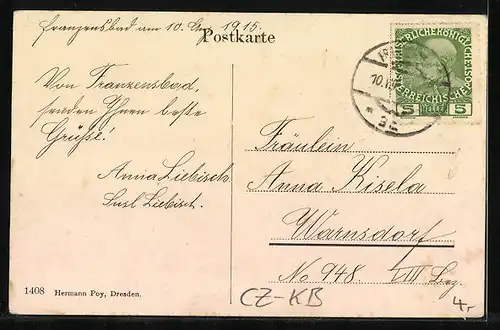 Franzensbad am 10. Aug. 1915.
Postkarte
Von Franzensbad,
senden Ihnen beste
Grüße!
Anna Liebisch
Susl Liebisch.
Fräulein
Anna Kisela
Warnsdorf
No 948. VIII Bez.
1408 Hermann Poy, Dresden.
CZ-KB
4,-
5 HELLER 5
10.